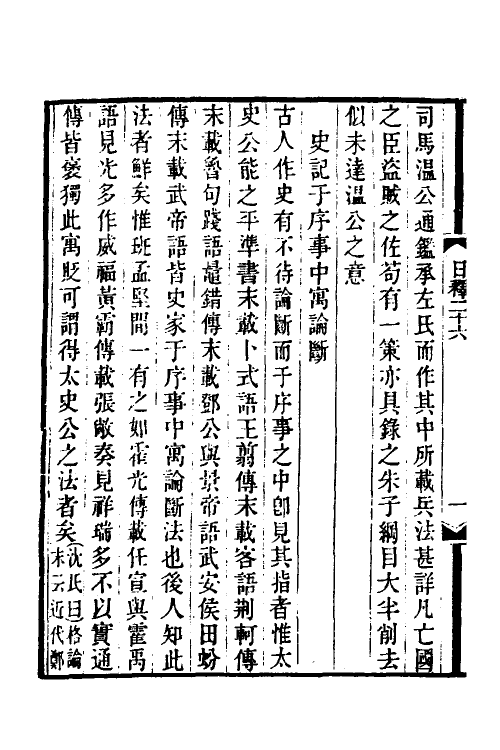 司馬溫公通鑑承左氏而作其中所載兵法甚詳凡亡國
之臣盜賊之佐苟有一策亦具錄之朱子綱目大半削去
似未達溫公之意
史記于序事中寓論斷
古人作史有不待論斷而于序事之中卽見其指者惟太
史公能之平準書末載卜式語王翦傳末載客語荊軻傳
末載魯句踐語鼂錯傳末載鄧公與景帝語武安侯田蚡
傳末載武帝語皆史家于序事中寓論斷法也後人知此
法者鮮矣惟班孟堅間一有之如霍光傳載任宣與霍禹
語見光多作威福黃霸傳載張敞奏見祥瑞多不以實通
傳皆褒獨此寓貶可謂得太史公之法者矣沈氏曰格論
末云近代鄭
日釋二十六
一